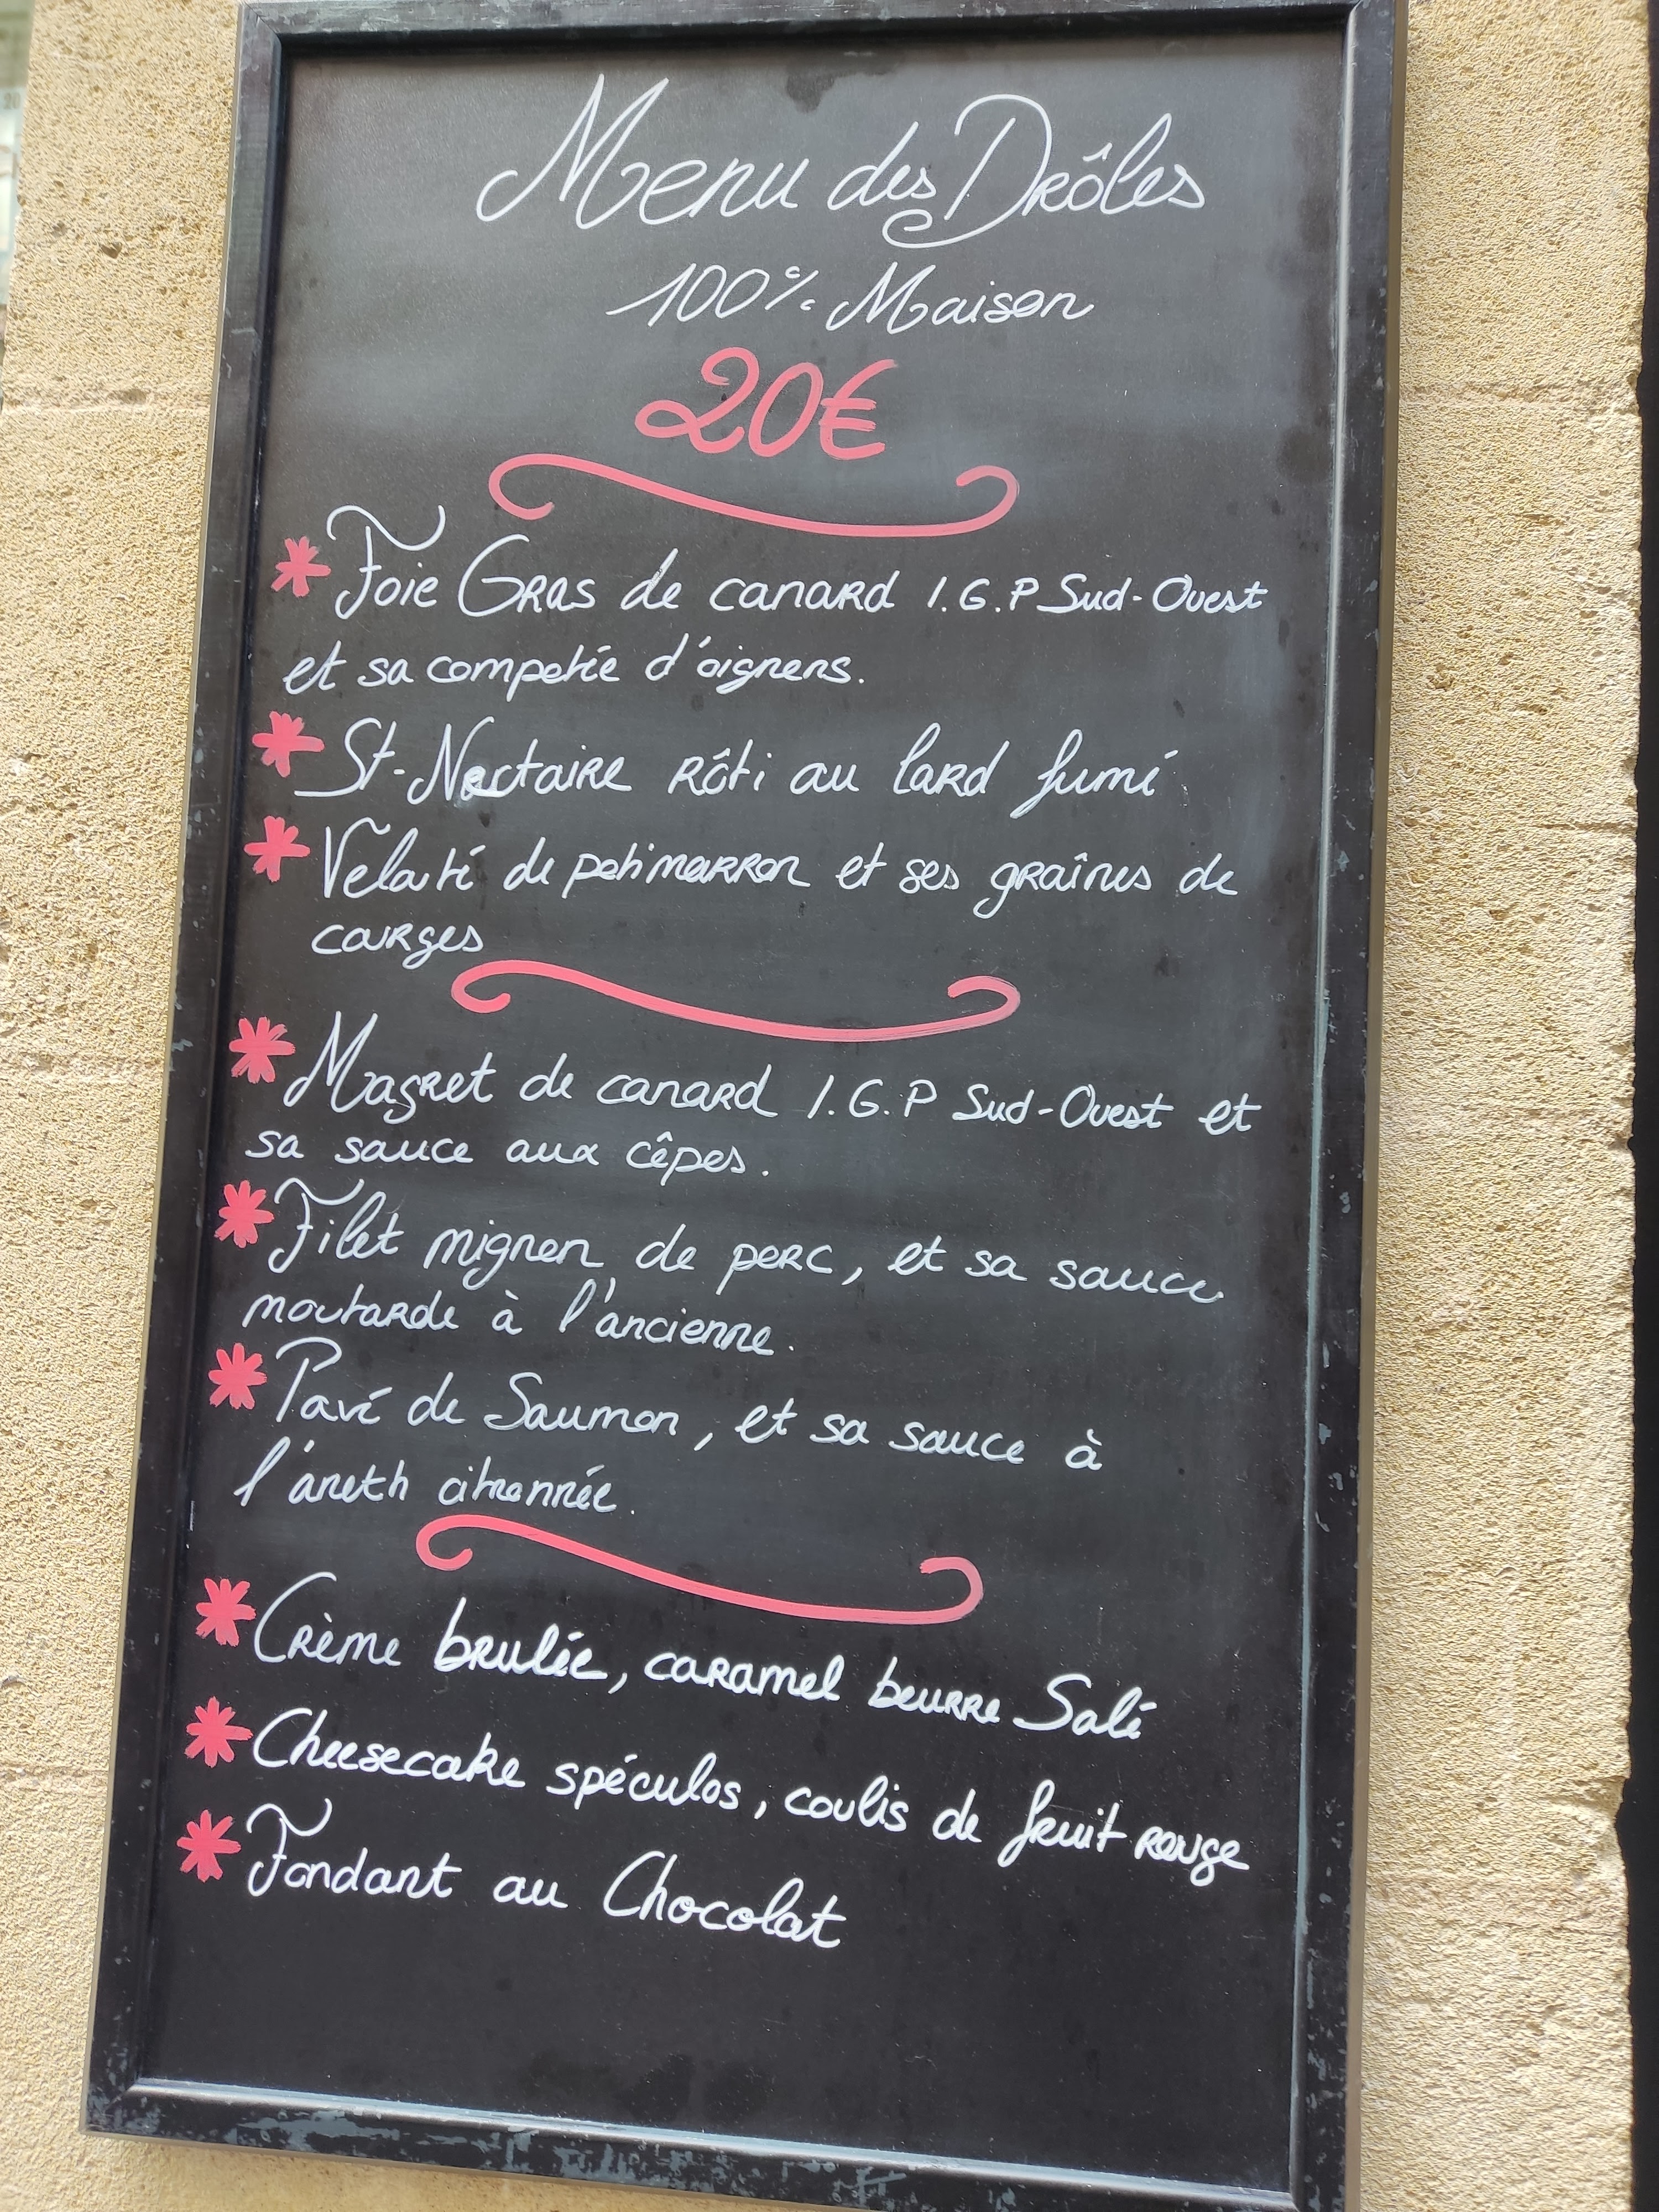 Menu des Drôles
100% Maison
20€
* Foie Gras de canard I.G.P Sud-Ouest
et sa compotée d'oignons.
* St-Nectaire rôti au lard fumé
* Velouté de potimarron et ses graînes de
courges
* Magret de canard I.G.P Sud-Ouest et
sa sauce aux cêpes.
* Filet mignon de porc, et sa sauce
moutarde à l'ancienne.
* Pavé de Saumon, et sa sauce à
l'aneth citronnée.
* Crème brulée, caramel beurre Salé
* Cheesecake spéculos, coulis de fruit rouge
* Fondant au Chocolat